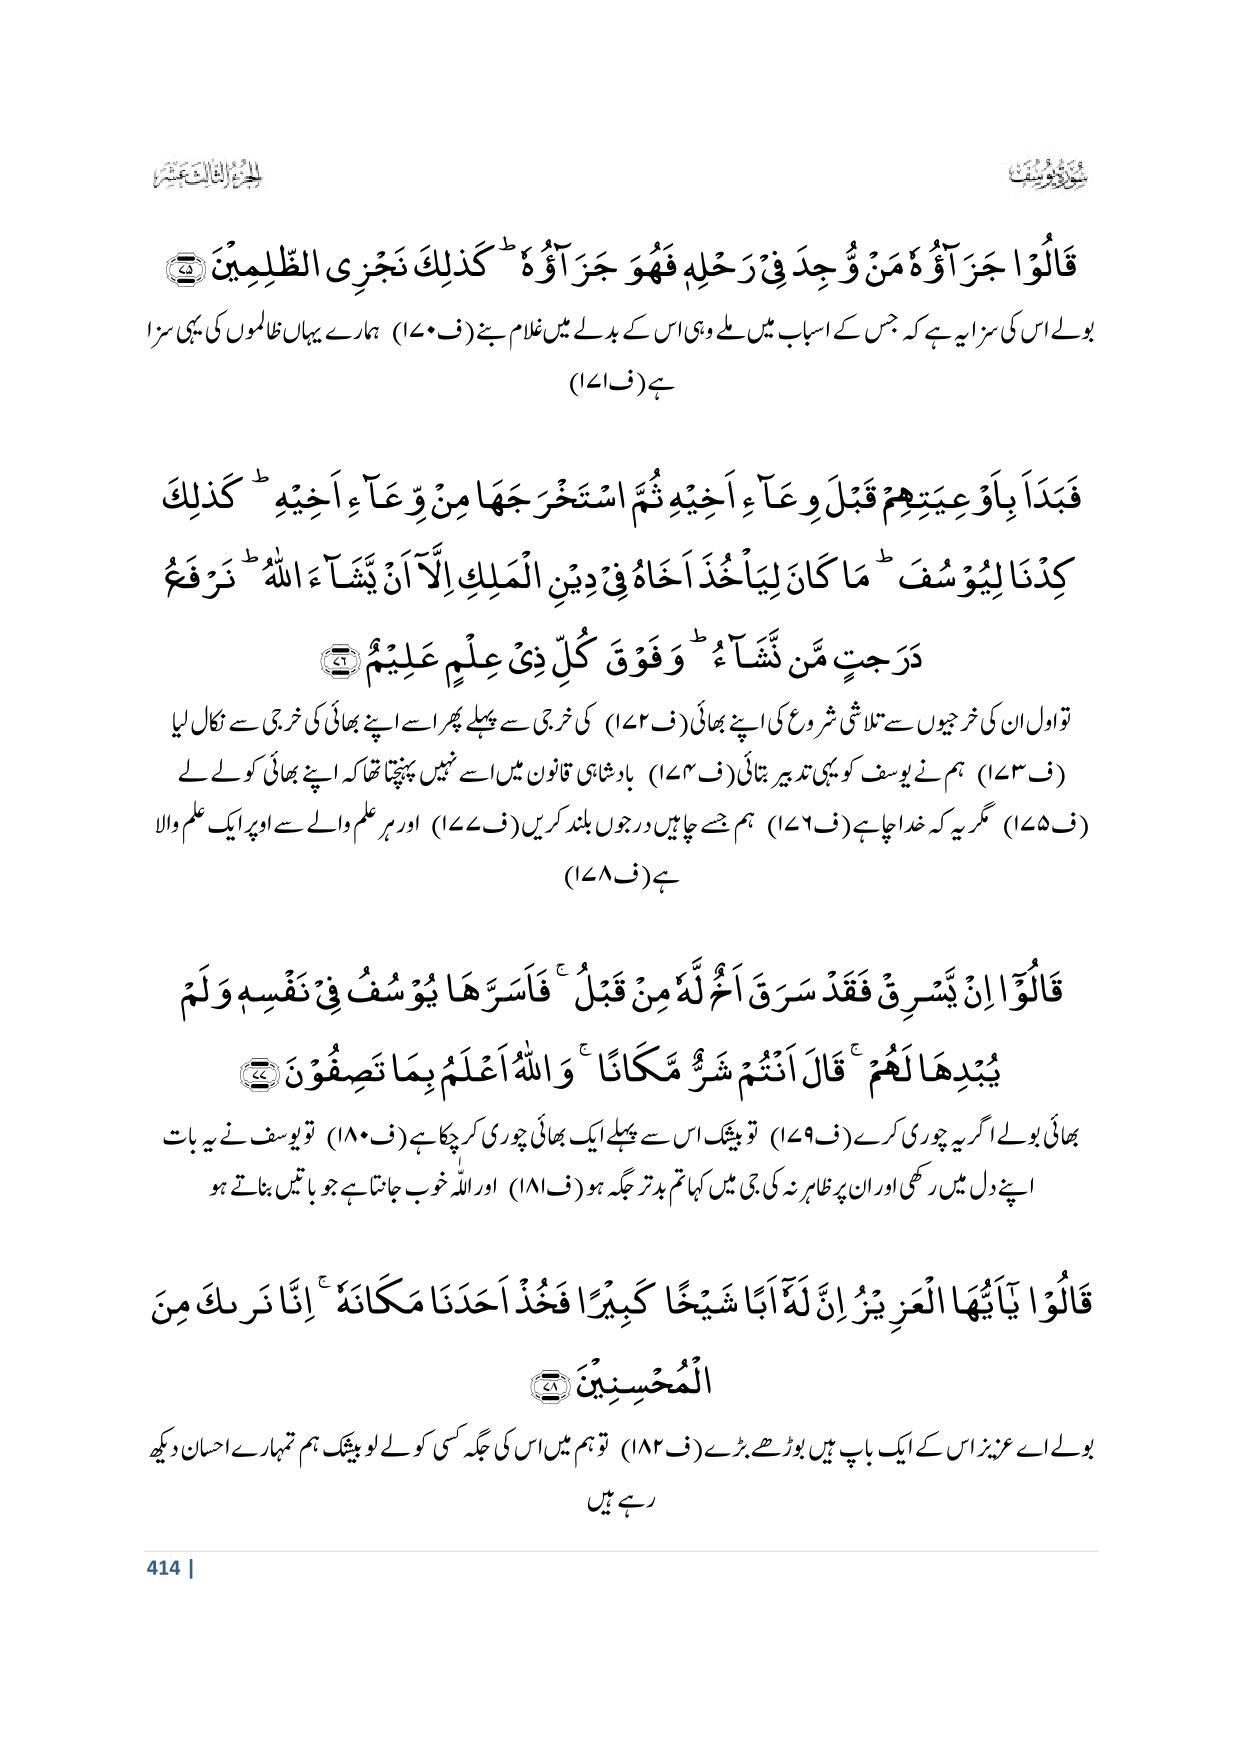 سُوْرَةُ يُوسُف
الجزء الثالث عشر
قَالُوْا جَزَآؤُهٗ مَنْ وُّجِدَ فِیْ رَحْلِهٖ فَهُوَ جَزَآؤُهٗ ؕ كَذٰلِكَ نَجْزِی الظّٰلِمِیْنَ ﴿۷۵﴾
بولے اس کی سزا یہ ہے کہ جس کے اسباب میں ملے وہی اس کے بدلے میں غلام بنے (ف۱۷۰) ہمارے یہاں ظالموں کی یہی سزا
ہے (ف۱۷۱)
فَبَدَاَ بِاَوْعِیَتِهِمْ قَبْلَ وِعَآءِ اَخِیْهِ ثُمَّ اسْتَخْرَجَهَا مِنْ وِّعَآءِ اَخِیْهِ ؕ كَذٰلِكَ
كِدْنَا لِیُوْسُفَ ؕ مَا كَانَ لِیَاْخُذَ اَخَاهُ فِیْ دِیْنِ الْمَلِكِ اِلَّاۤ اَنْ یَّشَآءَ اللّٰهُ ؕ نَرْفَعُ
دَرَجٰتٍ مَّن نَّشَآءُ ؕ وَ فَوْقَ كُلِّ ذِیْ عِلْمٍ عَلِیْمٌ ﴿۷۶﴾
تو اول ان کی خرجیوں سے تلاشی شروع کی اپنے بھائی (ف۱۷۲) کی خرجی سے پہلے پھر اسے اپنے بھائی کی خرجی سے نکال لیا
(ف۱۷۳) ہم نے یوسف کو یہی تدبیر بتائی (ف۱۷۴) بادشاہی قانون میں اسے نہیں پہنچتا تھا کہ اپنے بھائی کو لے لے
(ف۱۷۵) مگر یہ کہ خدا چاہے (ف۱۷۶) ہم جسے چاہیں درجوں بلند کریں (ف۱۷۷) اور ہر علم والے سے اوپر ایک علم والا
ہے (ف۱۷۸)
قَالُوْۤا اِنْ یَّسْرِقْ فَقَدْ سَرَقَ اَخٌ لَّهٗ مِنْ قَبْلُ ۚ فَاَسَرَّهَا یُوْسُفُ فِیْ نَفْسِهٖ وَ لَمْ
یُبْدِهَا لَهُمْ ۚ قَالَ اَنْتُمْ شَرٌّ مَّكَانًا ۚ وَ اللّٰهُ اَعْلَمُ بِمَا تَصِفُوْنَ ﴿۷۷﴾
بھائی بولے اگر یہ چوری کرے (ف۱۷۹) تو بیشک اس سے پہلے ایک بھائی چوری کر چکا ہے (ف۱۸۰) تو یوسف نے یہ بات
اپنے دل میں رکھی اور ان پر ظاہر نہ کی جی میں کہا تم بدتر جگہ ہو (ف۱۸۱) اور اللہ خوب جانتا ہے جو باتیں بناتے ہو
قَالُوْا یٰۤاَیُّهَا الْعَزِیْزُ اِنَّ لَهٗۤ اَبًا شَیْخًا كَبِیْرًا فَخُذْ اَحَدَنَا مَكَانَهٗ ۚ اِنَّا نَرٰىكَ مِنَ
الْمُحْسِنِیْنَ ﴿۷۸﴾
بولے اے عزیز اس کے ایک باپ ہیں بوڑھے بڑے (ف۱۸۲) تو ہم میں اس کی جگہ کسی کو لے لو بیشک ہم تمہارے احسان دیکھ
رہے ہیں
414 |